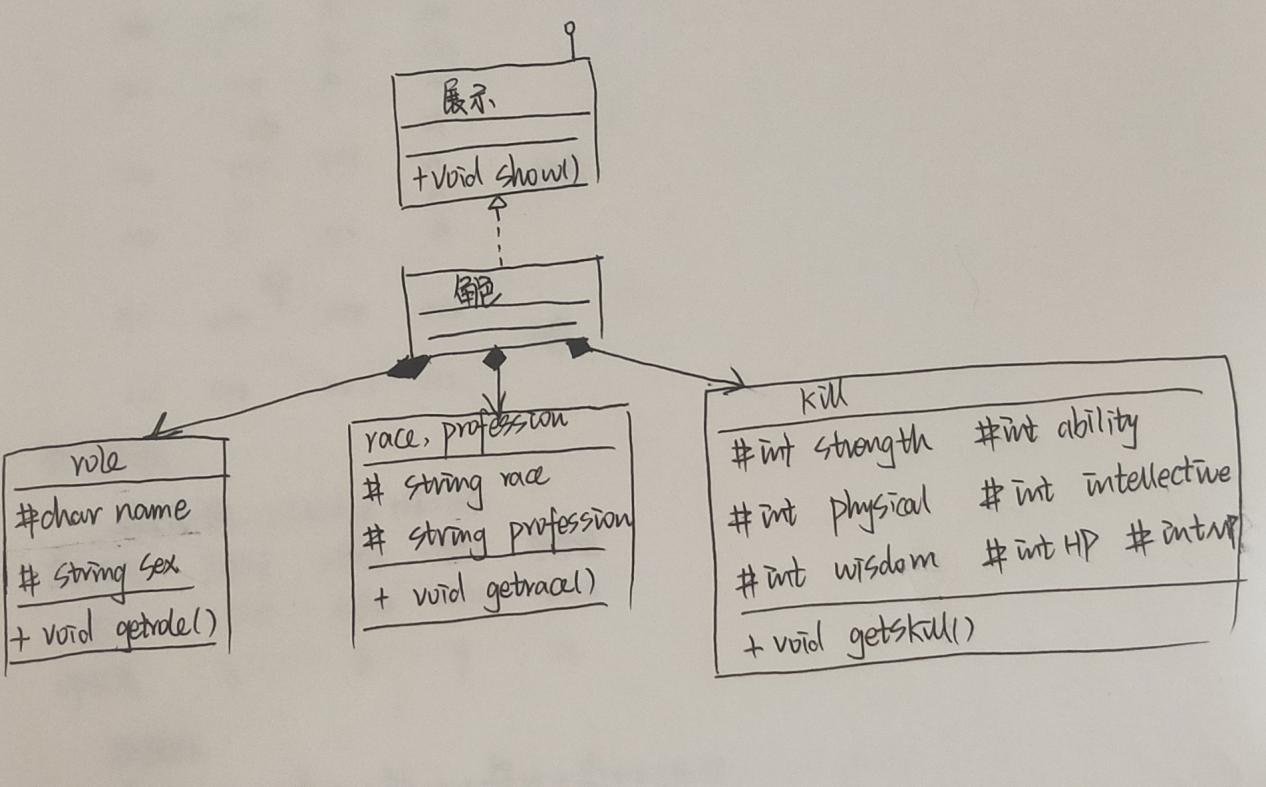 展示
+void show()
角色
role
#char name
# string sex
+ void getrole()
race, profession
# string race
# string profession
+ void getrace()
kill
#int strength #int ability
#int physical # int intellective
#int wisdom #int HP #int MP
+ void getskill()